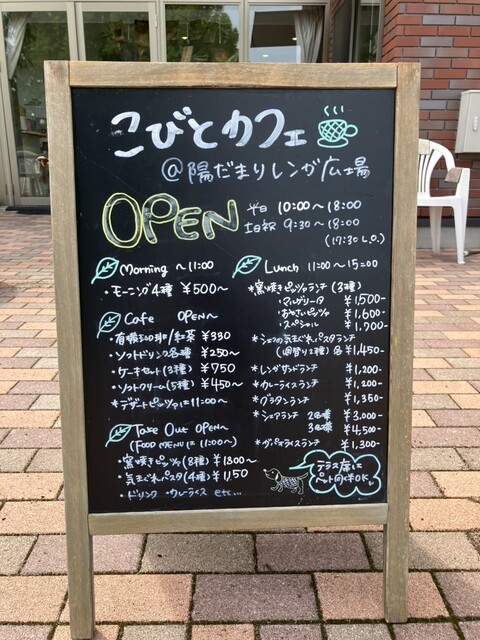 こびとカフェ
@陽だまりレンガ広場
OPEN
平日 10:00～18:00
土日祝 9:30～18:00
(17:30 L.O.)
Morning ～11:00
・モーニング4種 ¥500～
Cafe OPEN～
・有機珈琲/紅茶 ¥330
・ソフトドリンク各種 ¥250～
・ケーキセット(3種) ¥750
・ソフトクリーム(5種) ¥450～
*デザートピッツァは11:00～
Take Out OPEN～
(FOOD MENUは11:00～)
・窯焼きピッツァ(8種) ¥1300～
・気まぐれパスタ(4種) ¥1,150
・ドリンク ・カレーライス etc...
Lunch 11:00～15:00
*窯焼きピッツァランチ(3種)
・マルゲリータ ¥1,500-
・おやさいピッツァ ¥1,600-
・スペシャル ¥1,700-
*シェフの気まぐれパスタランチ
(週替り2種)各¥1,450-
*レンガサンドランチ ¥1,200-
*カレーライスランチ ¥1,200-
*グラタンランチ ¥1,350-
*シェアランチ 2名様 ¥3,000-
3名様 ¥4,500-
¥1,300-
テラス席は
ペット同伴OK